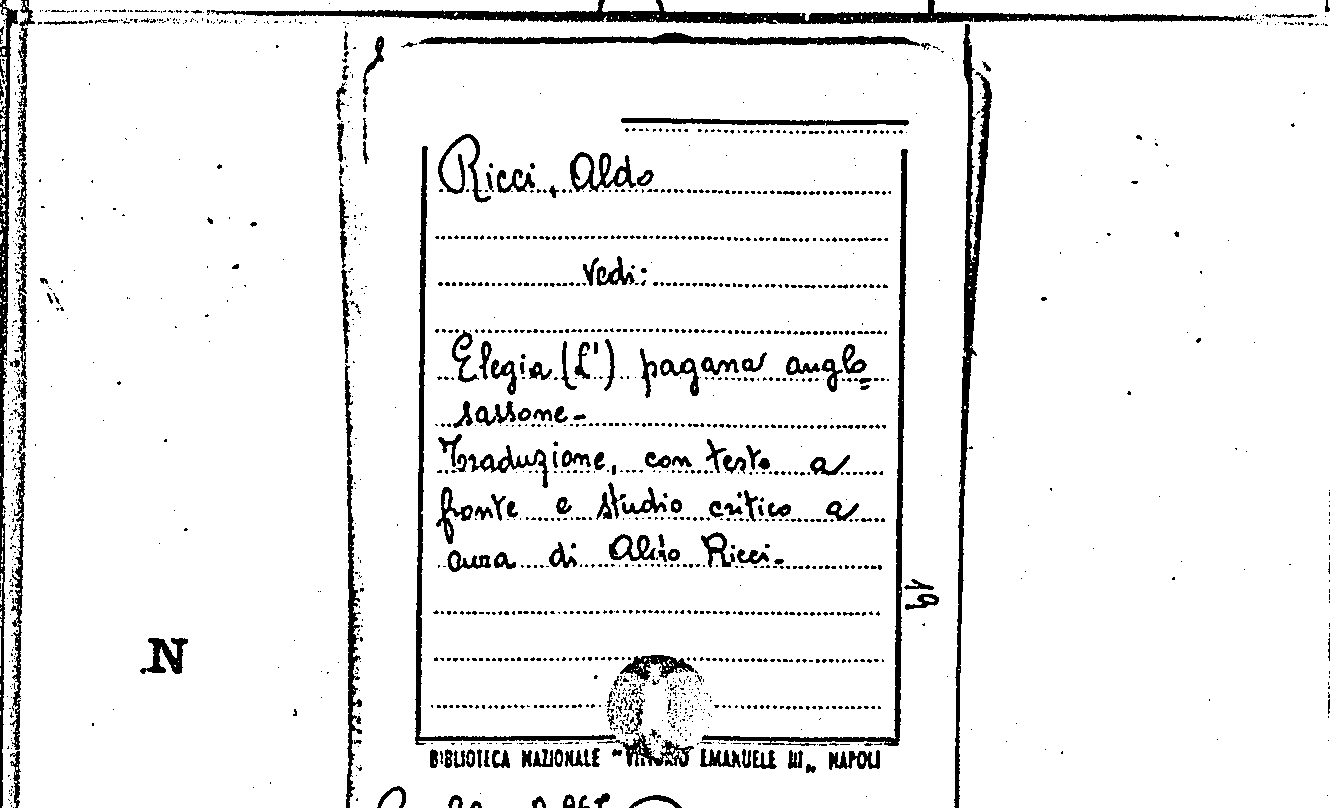 Ricci, Aldo
vedi:
Elegia (L') pagana anglo=
sassone-
Traduzione, con testo a
fronte e studio critico a
cura di Aldo Ricci.
19
N
BIBLIOTECA NAZIONALE "VITTORIO EMANUELE III„ NAPOLI